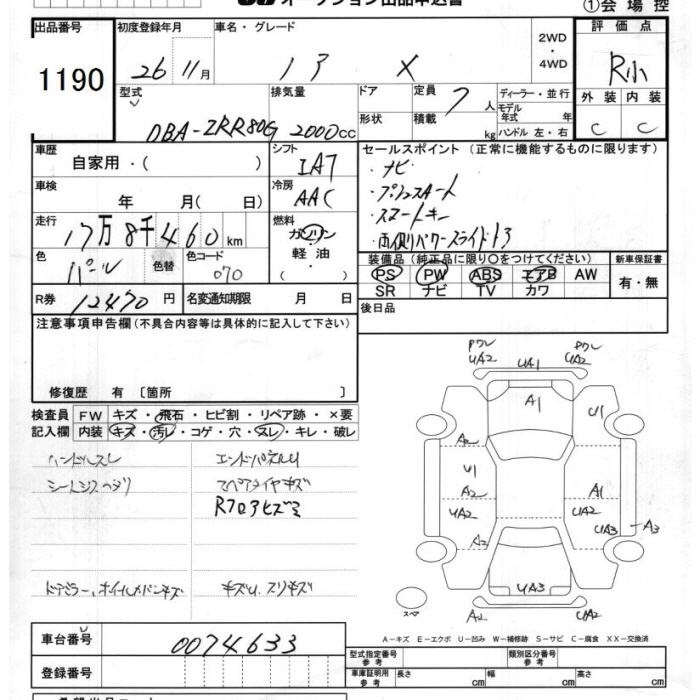 オークション出品申込書 ①会場控
出品番号 初度登録年月 車名・グレード 2WD ・ 4WD 評価点
1190 26 11月 ノア X R小
型式 排気量 ドア 定員 7人 ディーラー・並行 外装 内装
DBA-ZRR80G 2000cc 形状 積載 kg モデル年式 年 ハンドル 左・右 C C
車歴 自家用・( ) シフト IAT セールスポイント (正常に機能するものに限ります)
・ナビ
車検 年 月( 日) 冷房 AAC ・プッシュスタート
・スマートキー
走行 17万8千460km 燃料 ガソリン 軽油・ ( ) ・両側パワースライドドア
色 パール 色替 色コード 070
装備品 (純正品に限り○をつけてください) 新車保証書
PS PW ABS エアB AW 有・無
SR ナビ TV カワ
R券 12470円 名変通知期限 月 日 後日品
注意事項申告欄 (不具合内容等は具体的に記入して下さい)
修復歴 有 〔箇所 〕
検査員 FW キズ・飛石・ヒビ割・リペア跡・×要
記入欄 内装 キズ・汚レ・コゲ・穴・スレ・キレ・破レ
ハンドルスレ エンドパネルU
シートシワヘタリ スペアタイヤキズ
Rフロアヒズミ
ドアミラー、ホイール、バンキズ キズU、スリキズ
ワレ UA2 UA1 ワレ UA2
A1 U1
A2
U1
A2 A1
UA2 UA2
UA3 A3
A2
UA3
スペア A2 UA2
A-キズ E-エクボ U-凹み W-補修跡 S-サビ C-腐食 XX-交換済
車台番号 0074633
型式指定番号 参考 類別区分番号 参考
登録番号 車庫証明用 参考 長さ cm 幅 cm 高さ cm